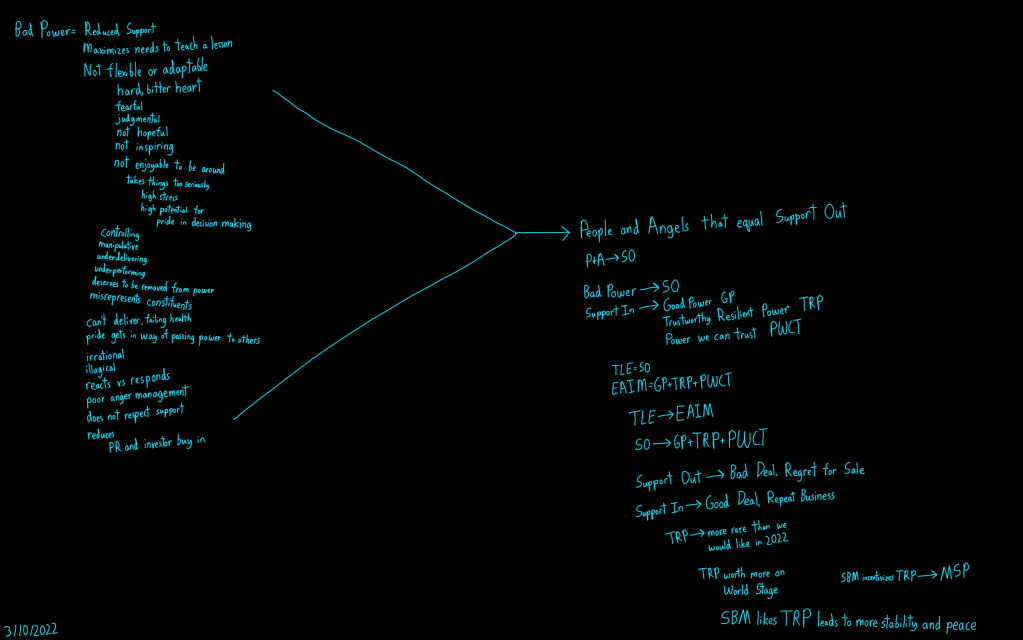 Bad Power= Reduced Support
Maximizes needs to teach a lesson
Not flexible or adaptable
hard, bitter heart
fearful
judgmental
not hopeful
not inspiring
not enjoyable to be around
takes things too seriously
high stress
high potential for
pride in decision making
Controlling
manipulative
underdelivering
underperforming
deserves to be removed from power
misrepresents constituents
Can't deliver, failing health
pride gets in way of passing power to others
irrational
illogical
reacts vs responds
poor anger management
does not respect support
reduces
PR and investor buy in
People and Angels that equal Support Out
P+A→SO
Bad Power→SO
Support In→Good Power GP
Trustworthy Resilient Power TRP
Power we can trust PWCT
TLE=SO
EAIM=GP+TRP+PWCT
TLE→EAIM
SO→GP+TRP+PWCT
Support Out→Bad Deal, Regret for Sale
Support In→Good Deal, Repeat Business
TRP→more rare than we
would like in 2022
TRP worth more on
World Stage
SBM incentivizes TRP→MSP
SBM likes TRP leads to more stability and peace
3/10/2022